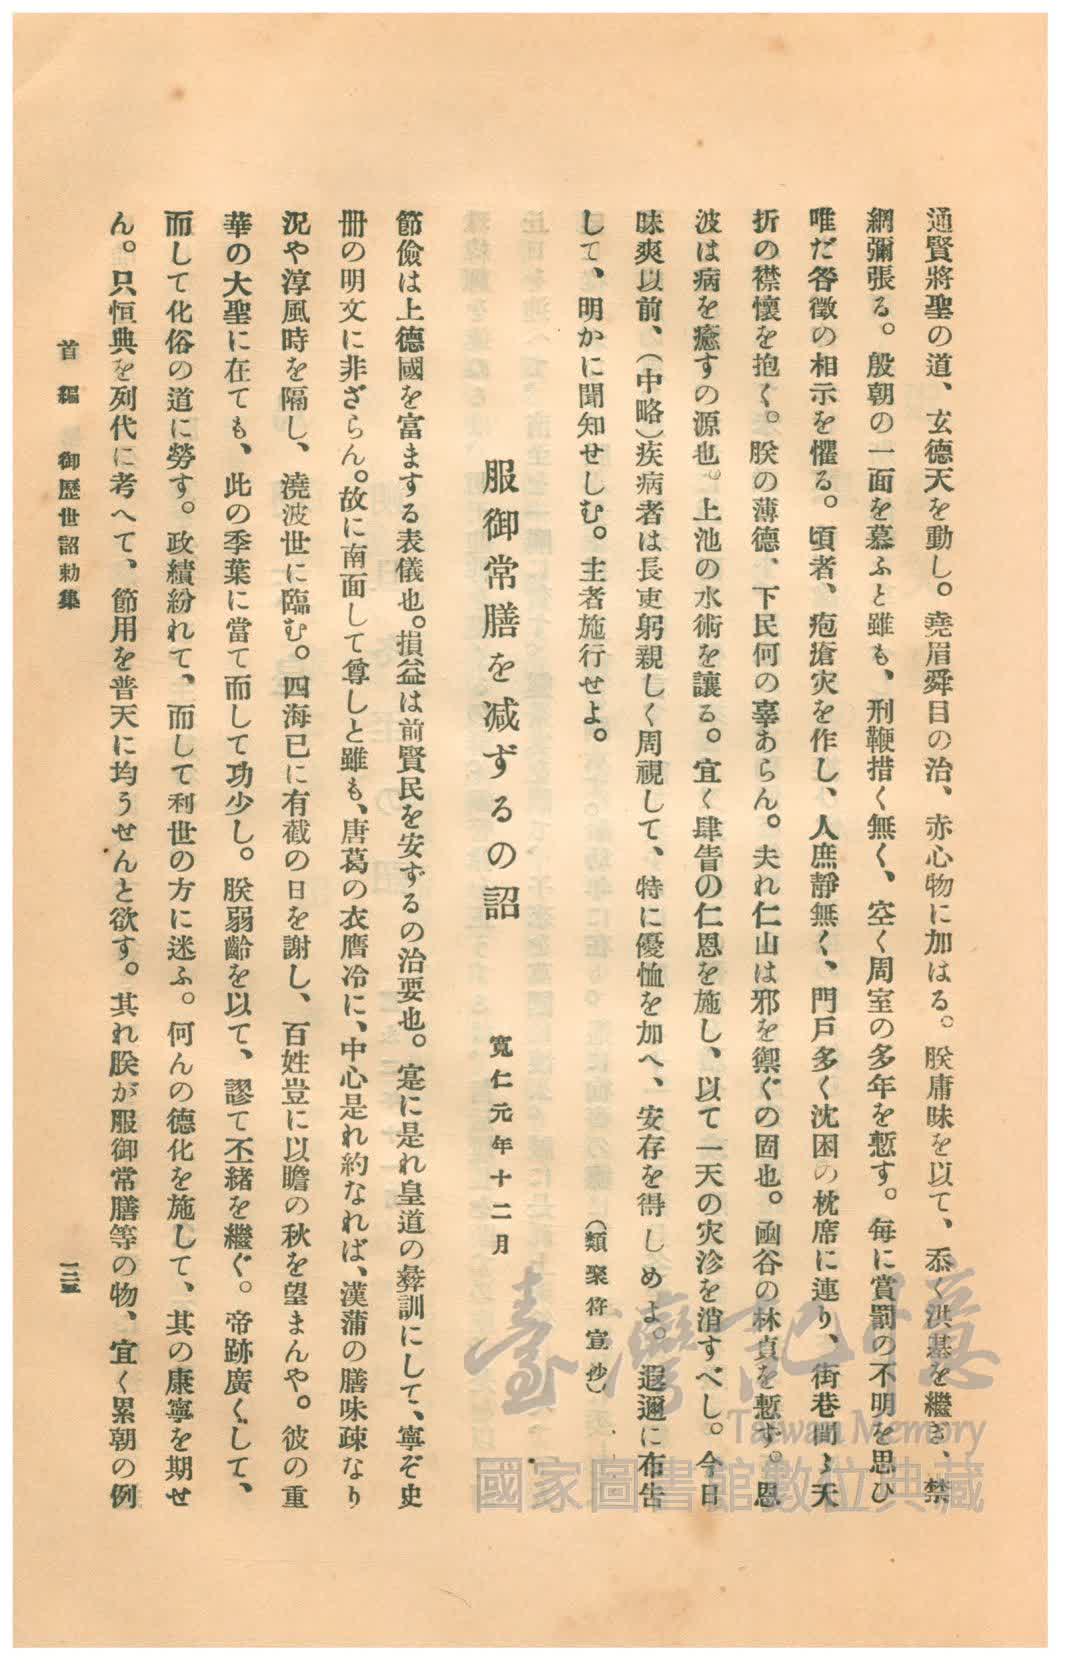 通賢將聖の道、玄德天を動し。堯眉舜目の治、赤心物に加はる。朕庸昧を以て、忝く洪基を繼ぎ、禁
網彌張る。殷朝の一面を慕ふと雖も、刑鞭措く無く、空く周室の多年を慙す。每に賞罰の不明を思ひ
唯だ咎徵の相示を懼る。頃者、疱瘡灾を作し、人庶靜無く、門戸多く沈困の枕席に連り、街巷間〻天
折の襟懷を抱く。朕の薄德、下民何の辜あらん。夫れ仁山は邪を禦ぐの固也。凾谷の林貞を慙ず。恩
波は病を癒すの源也。上池の水術を讓る。宜く肆眚の仁恩を施し、以て一天の灾沴を消すべし。今日
昧爽以前、（中略）疾病者は長吏躬親しく周視して、特に優恤を加へ、安存を得しめよ。遐邇に布告
して、明かに聞知せしむ。主者施行せよ。　（類聚符宣抄）
服御常膳を減ずるの詔　寬仁元年十二月
節儉は上德國を富ますの表儀也。損益は前賢民を安ずるの治要也。寔に是れ皇道の彝訓にして、寧ぞ史
册の明文に非ざらん。故に南面して尊しと雖も、唐葛の衣膺冷に、中心是れ約なれば、漢蒲の膳味疎なり
況や淳風時を隔し、澆波世に臨む。四海已に有截の日を謝し、百姓豈に以瞻の秋を望まんや。彼の重
華の大聖に在ても、此の季葉に當て而して功少し。朕弱齡を以て、謬て丕緒を繼ぐ。帝跡廣くして、
而して化俗の道に勞す。政績紛れて、而して利世の方に迷ふ。何んの德化を施して、其の康寧を期せ
ん。只恒典を列代に考へて、節用を普天に均うせんと欲す。其れ朕が服御常膳等の物、宜く累朝の例
首編　御歷世詔勅集
一二五
臺灣記憶
Taiwan Memory
國家圖書館數位典藏